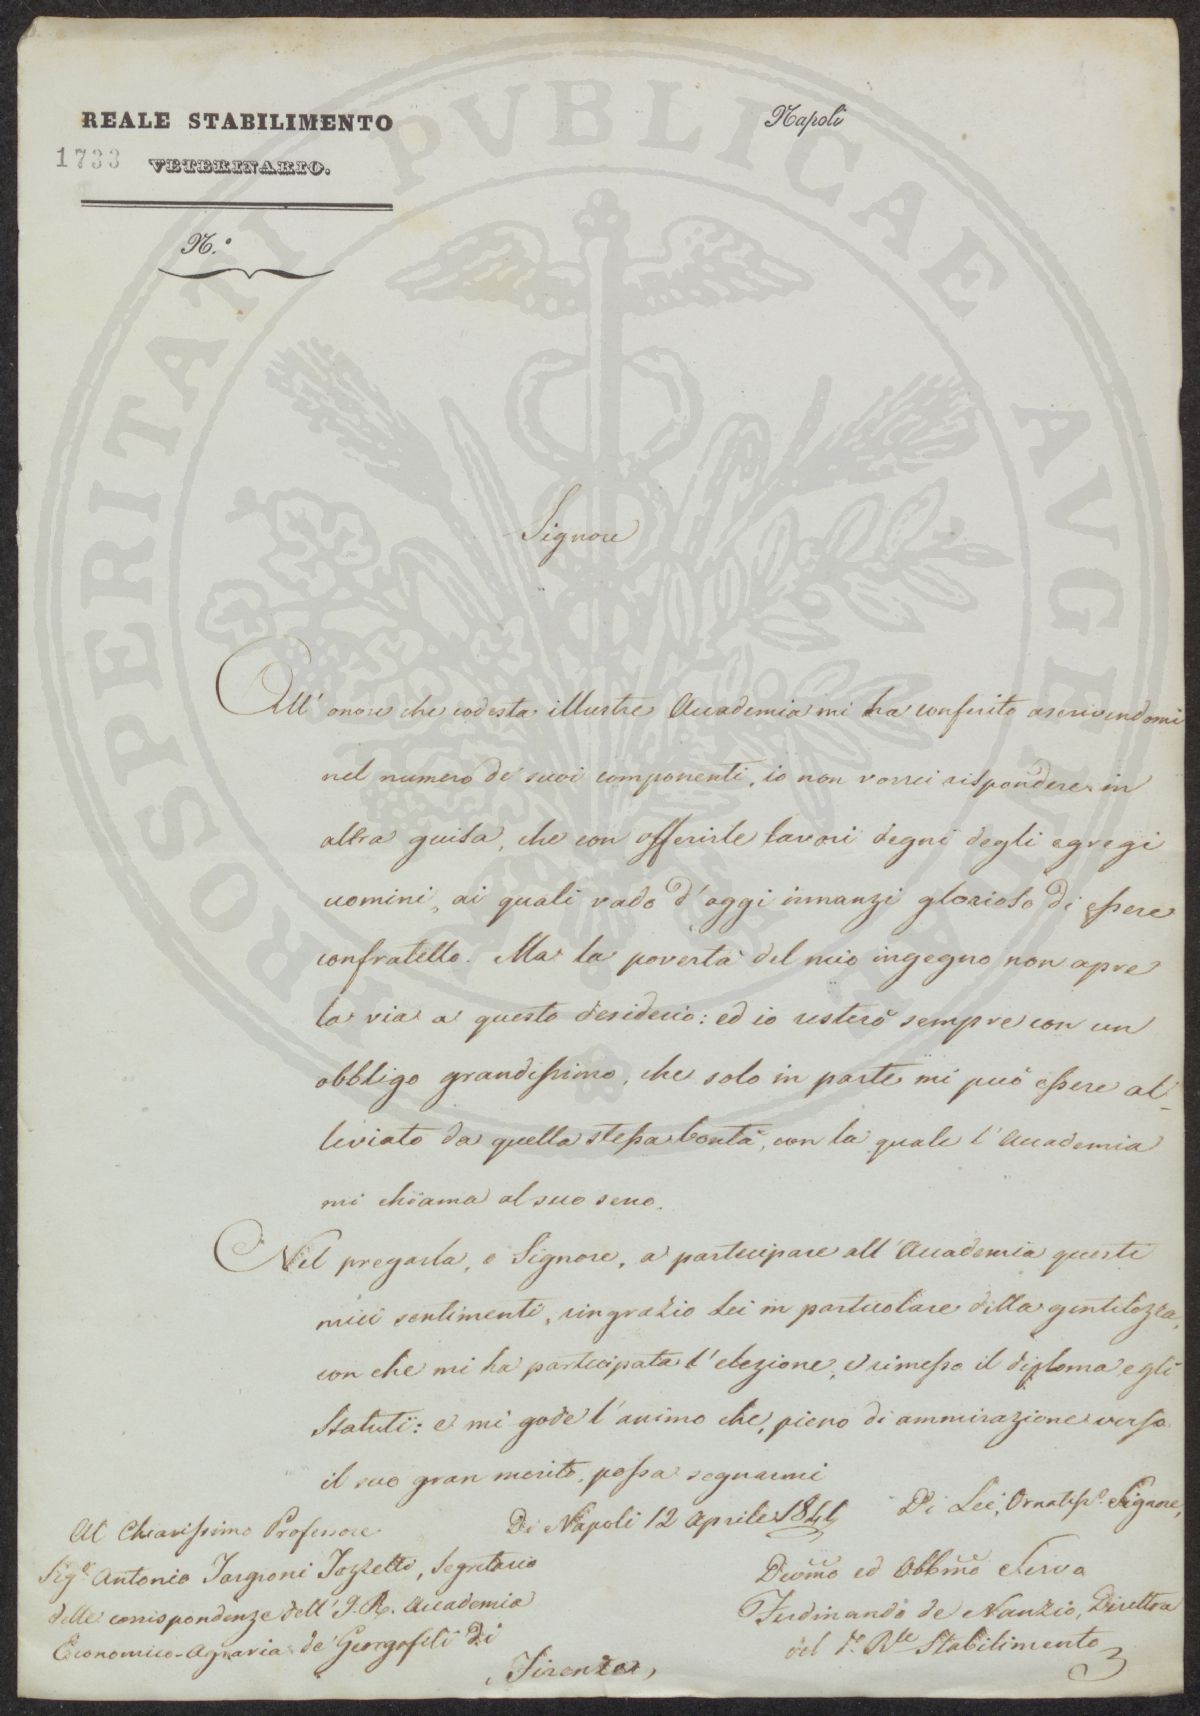 REALE STABILIMENTO
Napoli
1733 VETERINARIO.
N.°
PROSPERITATI PUBLICAE AUGENDAE
Signore
All' onore che codesta illustre Accademia mi ha conferito ascrivendomi
nel numero de' suoi componenti, io non vorrei rispondere in
altra guisa, che con offerirle lavori degni degli egregi
uomini, ai quali vado d'oggi innanzi glorioso di essere
confratello. Ma la povertà del mio ingegno non apre
la via a questo desiderio: ed io resterò sempre con un
obbligo grandissimo, che solo in parte mi può essere al-
leviato da quella stessa bontà, con la quale l'Accademia
mi chiama al suo seno.
Nel pregarla, o Signore, a partecipare all'Accademia questi
miei sentimenti, ringrazio Lei in particolare della gentilezza,
con che mi ha partecipata l'elezione, e rimesso il diploma e gli
Statuti: e mi gode l'animo che, pieno di ammirazione verso
il suo gran merito, possa segnarmi
Di Napoli 12 Aprile 1841
Di Lei, Ornatiss.° Signore,
Al Chiarissimo Professore
Sig.r Antonio Targioni Tozzetti, Segretario
delle corrispondenze dell' I. R. Accademia
Economico-Agraria de' Georgofili di
Firenze
Devmo ed Obbmo Servo
Ferdinando de Nanzio, Direttore
del Rle Stabilimento